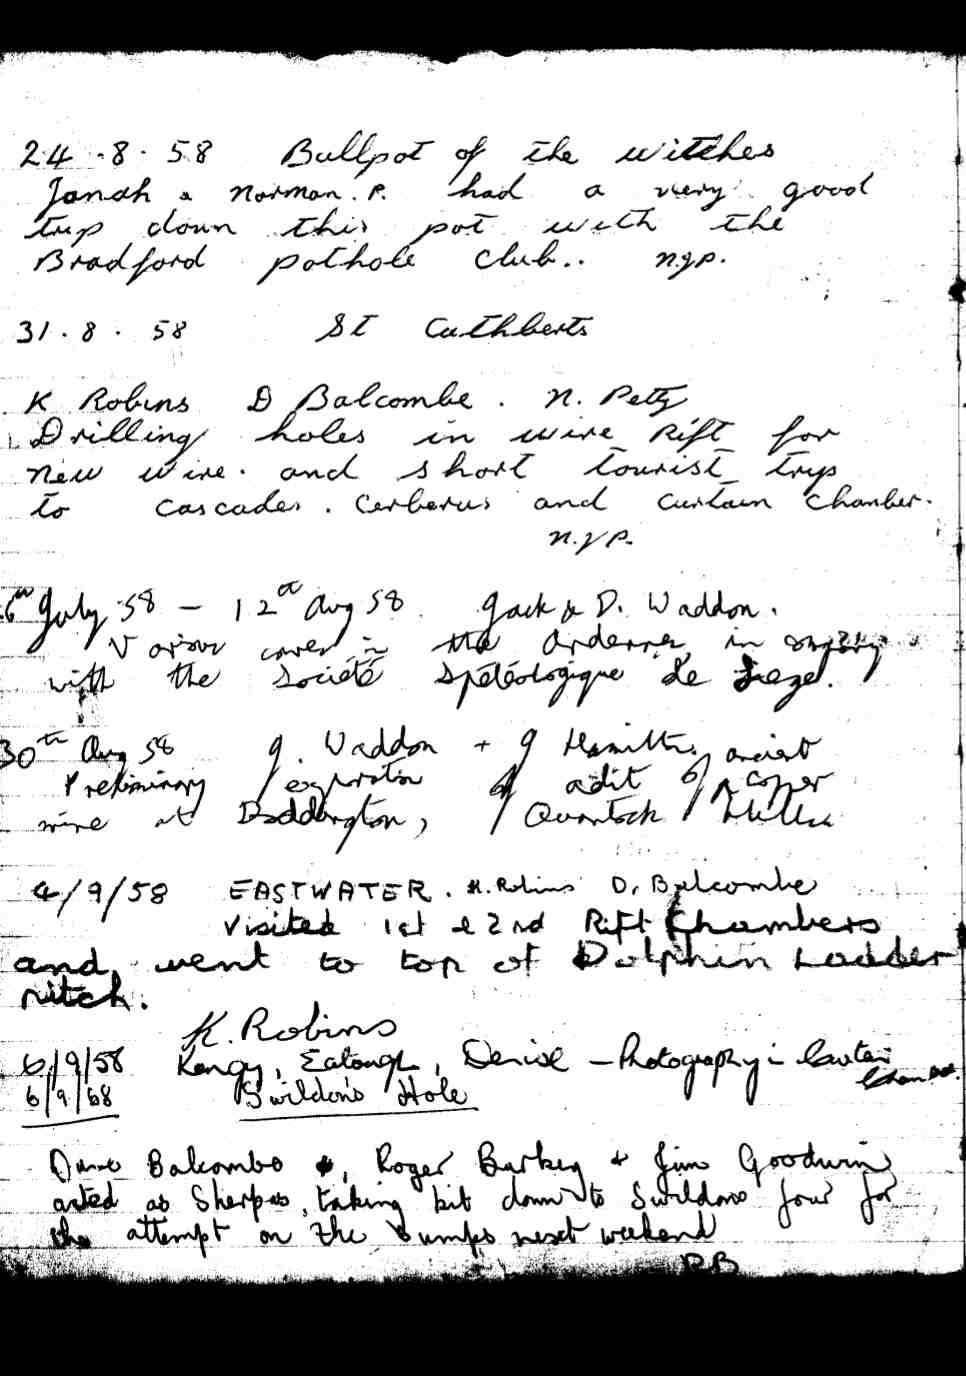 24.8.58 Bullpot of the witches
Jonah & Norman. P. had a very good
trip down this pot with the
Bradford pothole club.. N.J.P.
31.8.58 St Cuthberts
K Robins D Balcombe. N. Petty
Drilling holes in wire Rift for
New wire. and short tourist trip
to cascades. Cerberus and curtain chamber.
N.J.P.
6th July 58 - 12th Aug 58. Jack & D. Waddon.
Various caves in the Ardennes, in
with the Société Spéléologique de Liege.
30th Aug 58 J. Waddon + J Hamilton
Preliminary exploration of adit of ancient copper
mine at Doddington, Quantock Hills
4/9/58 EASTWATER. K. Robins D. Balcombe
Visited 1st & 2nd Rift Chambers
and went to top of Dolphin Ladder
pitch.
K. Robins
6/9/58 Kangy, Eatough, Denise - Photography in Curtain Chamber.
6/9/58 Swildon's Hole
Dave Balcombe, Roger Burkey + Jim Goodwin
acted as Sherpas, taking kit down to Swildons four for
the attempt on the Sumps next weekend
RB